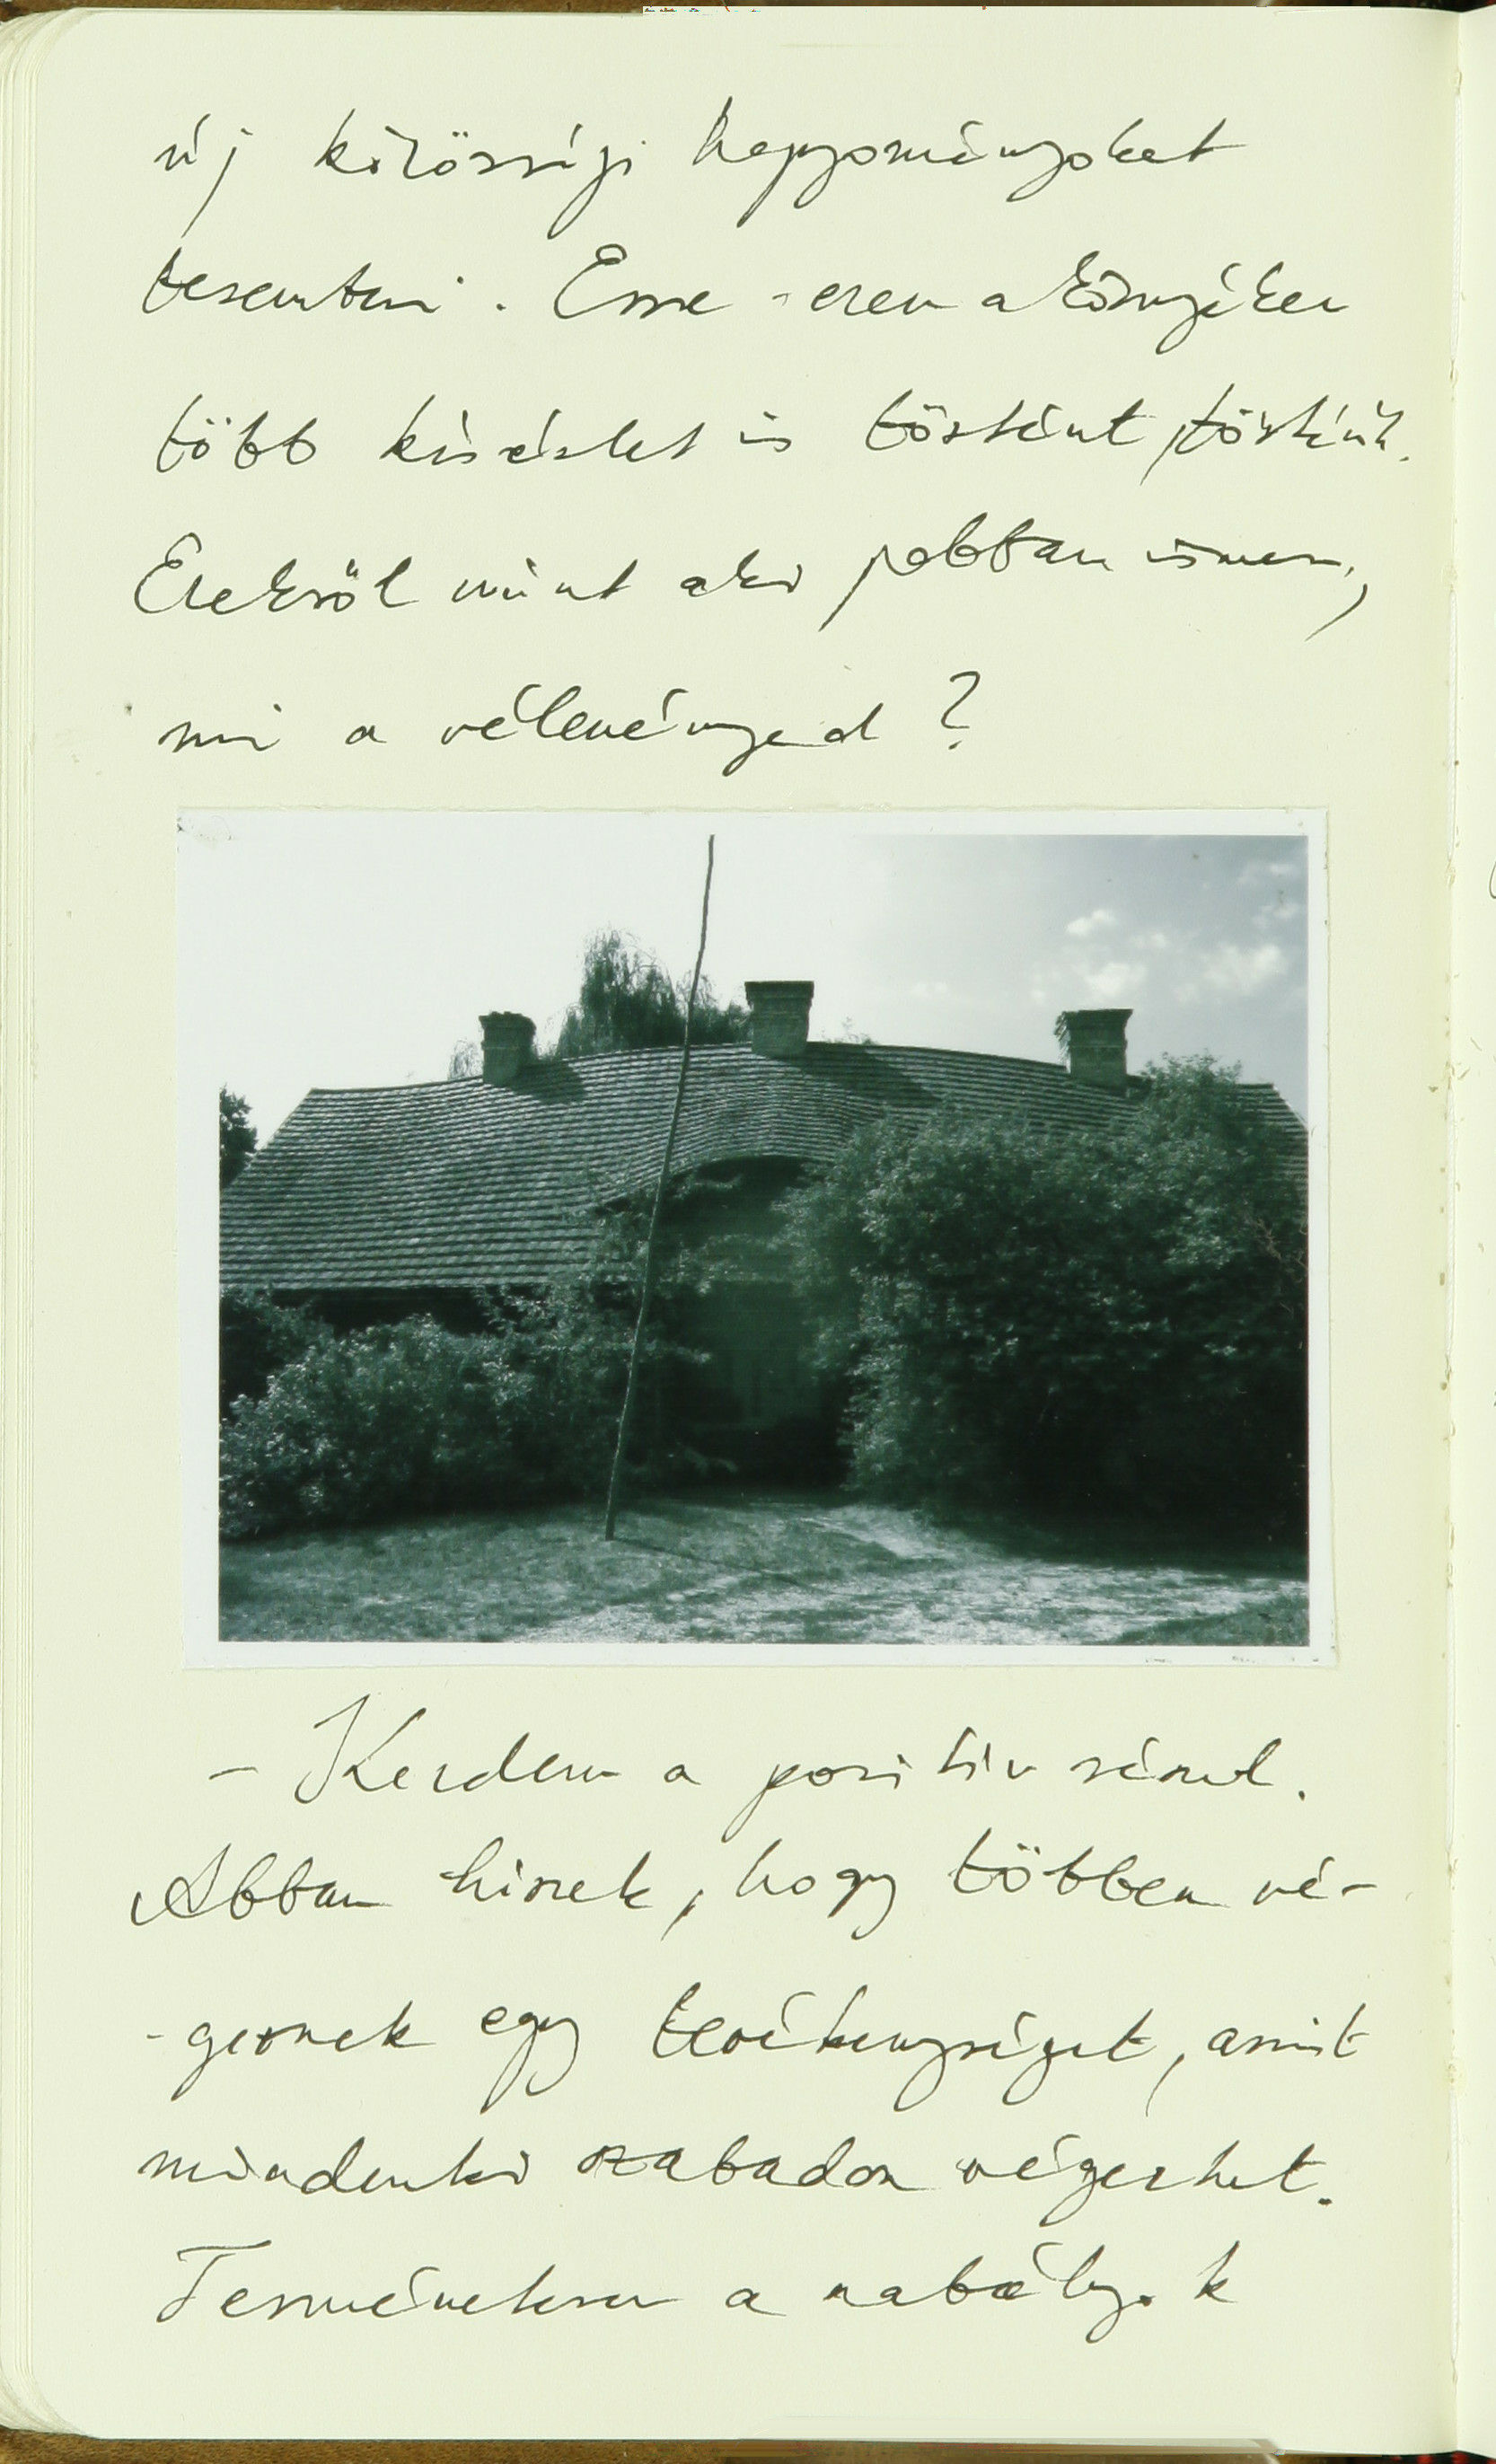 új közösségi hagyományokat
teremteni. Erre - ezen a környéken
több kísérlet is történt, történik.
Ezekről mint aki jobban ismeri,
mi a véleményed?
- Kezdem a pozitív résszel.
Abban hiszek, hogy többen vé-
-geznek egy tevékenységet, amit
mindenki szabadon végezhet.
Természetesen a szabályok